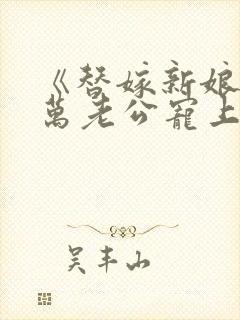 《替嫁新娘
萬老公寵上
吴丰山